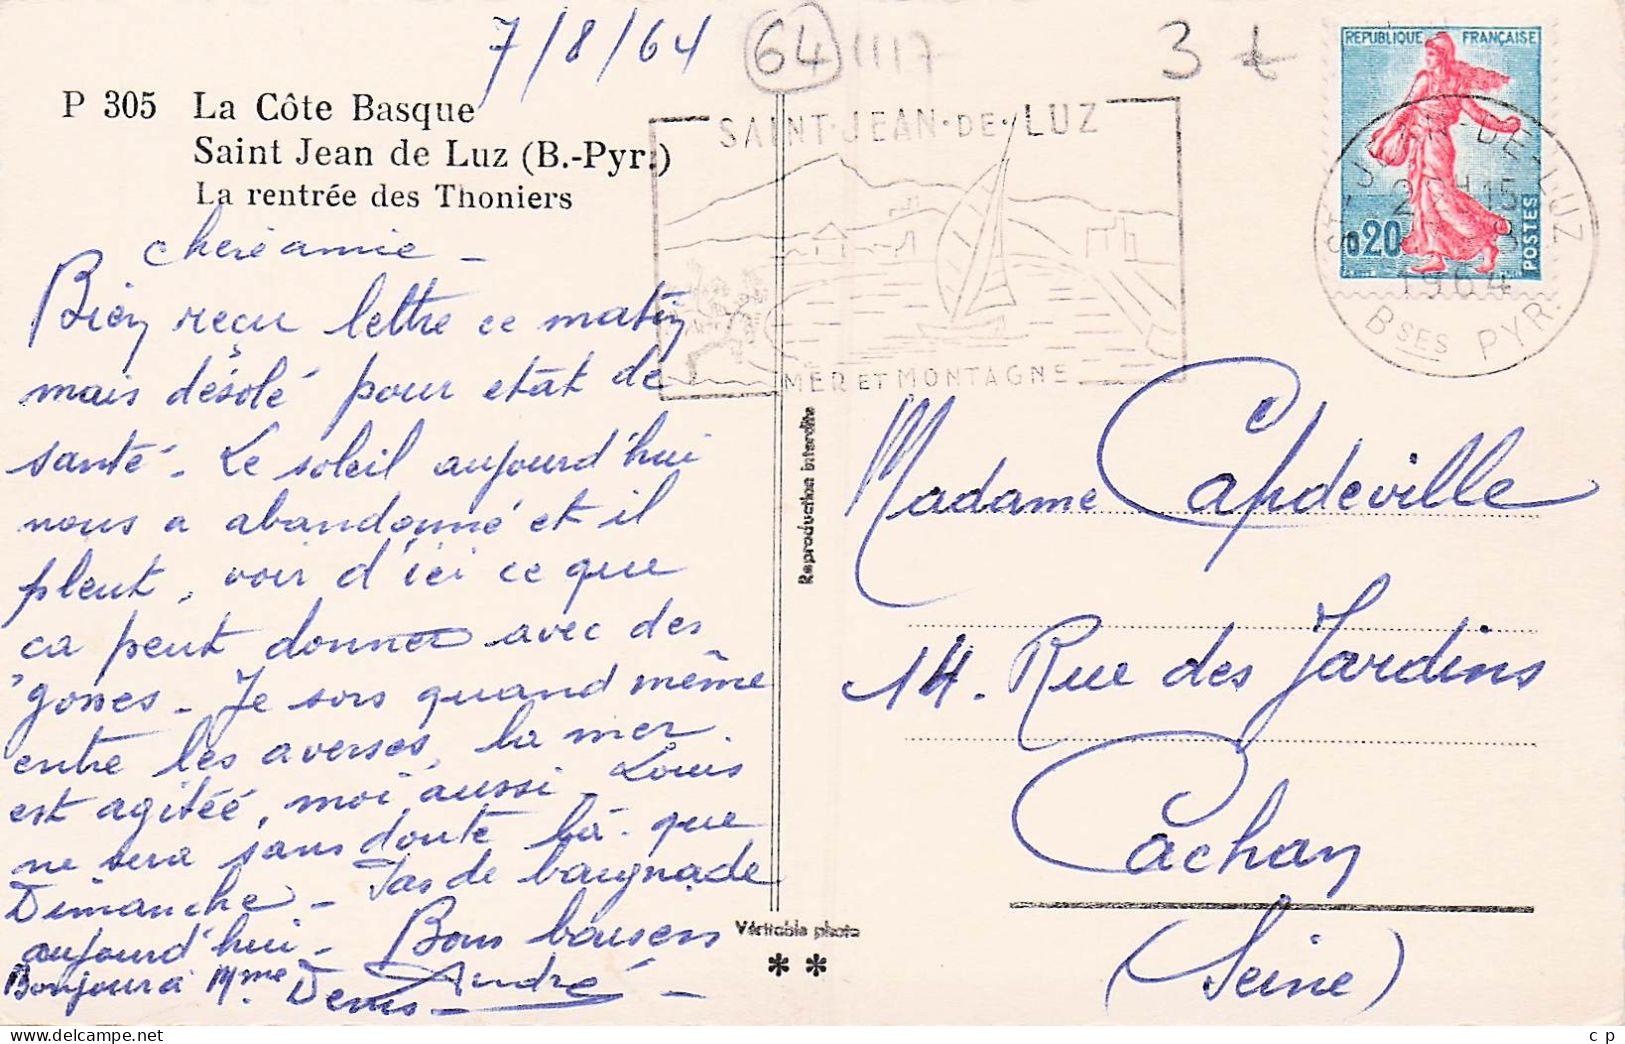 7/8/64
64 1117
3 t
P 305 La Côte Basque
Saint Jean de Luz (B.-Pyr.)
La rentrée des Thoniers
chère amie -
Bien reçu lettre ce matin
mais désolé pour etat de
santé - Le soleil aujourd'hui
nous a abandonné et il
pleut, voir d'ici ce que
ca peut donner avec des
gosses - Je sors quand même
entre les averses, la mer
est agitéé, moi aussi - Louis
ne sera sans doute là - que
Dimanche - Pas de baignade
aujourd'hui - Bons baisers
André
Bonjour à Mme Denis -
SAINT·JEAN·DE·LUZ
MER ET MONTAGNE
REPUBLIQUE FRANÇAISE
0,20
POSTES
ST-JEAN-DE-LUZ
1964
BSES PYR.
Reproduction interdite
Véritable photo
* *
Madame Capdeville
14. Rue des Jardins
Cachan
(Seine)
c p